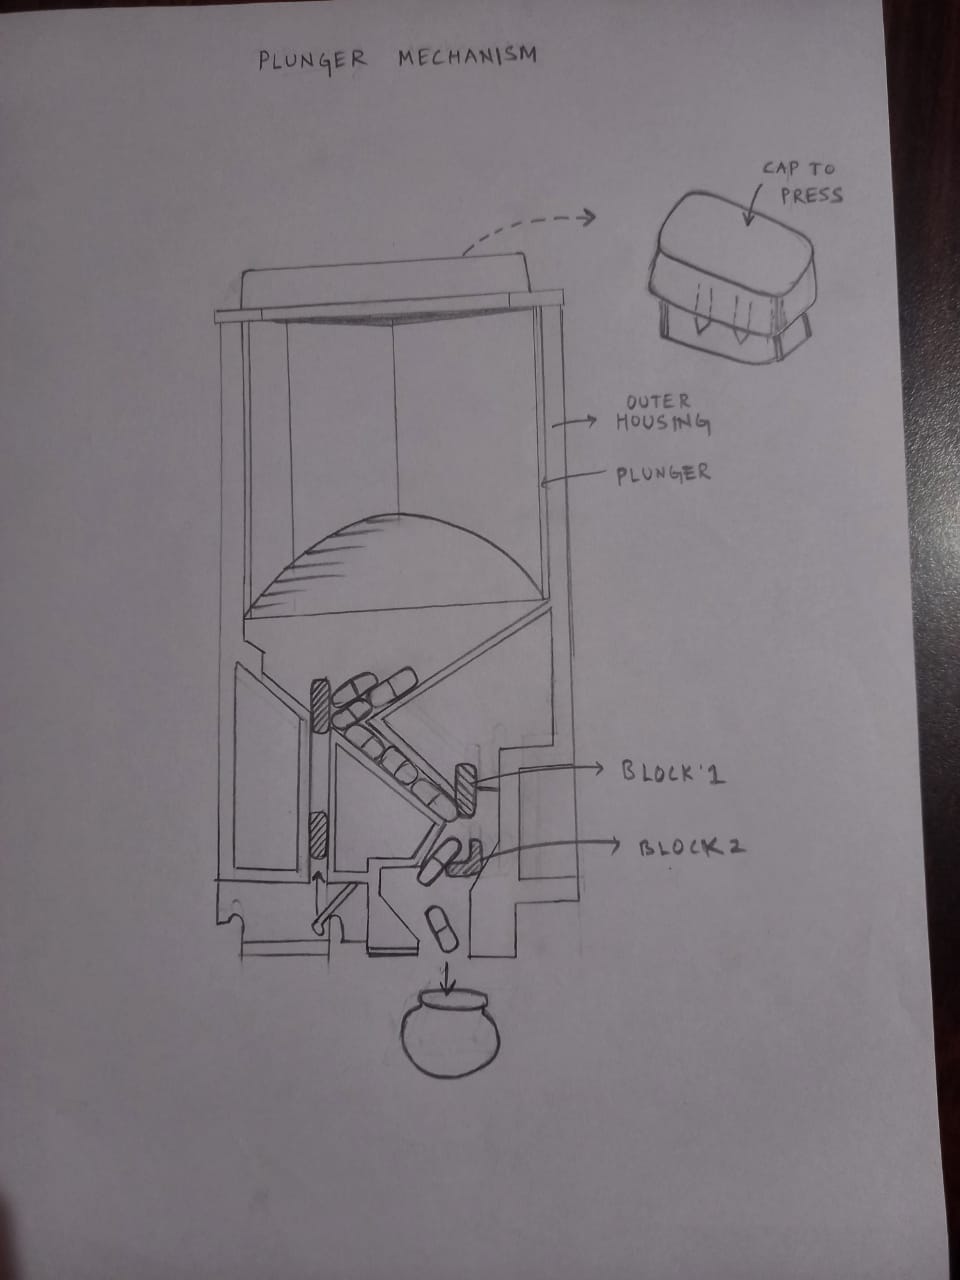 PLUNGER MECHANISM
CAP TO
PRESS
OUTER
HOUSING
PLUNGER
BLOCK 1
BLOCK 2